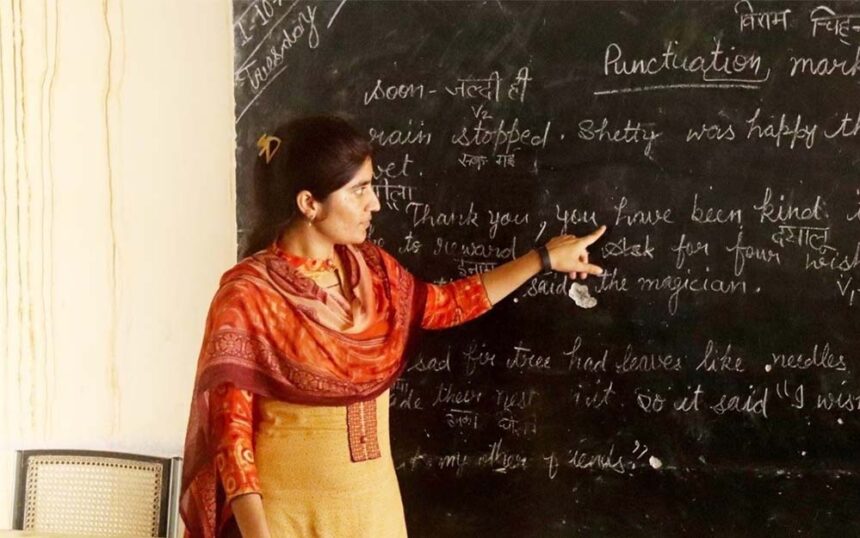 विराम चिह्न
Tuesday
Punctuation mark
soon - जल्दी ही
V2
rain stopped. Shetty was happy th
रुक गई
"Thank you, you have been kind.
दयालु
to reward ask for four wish
ईनाम
V1
said the magician.
sad fir tree had leaves like needles
their nest it. So it said "I wis
my other friends."